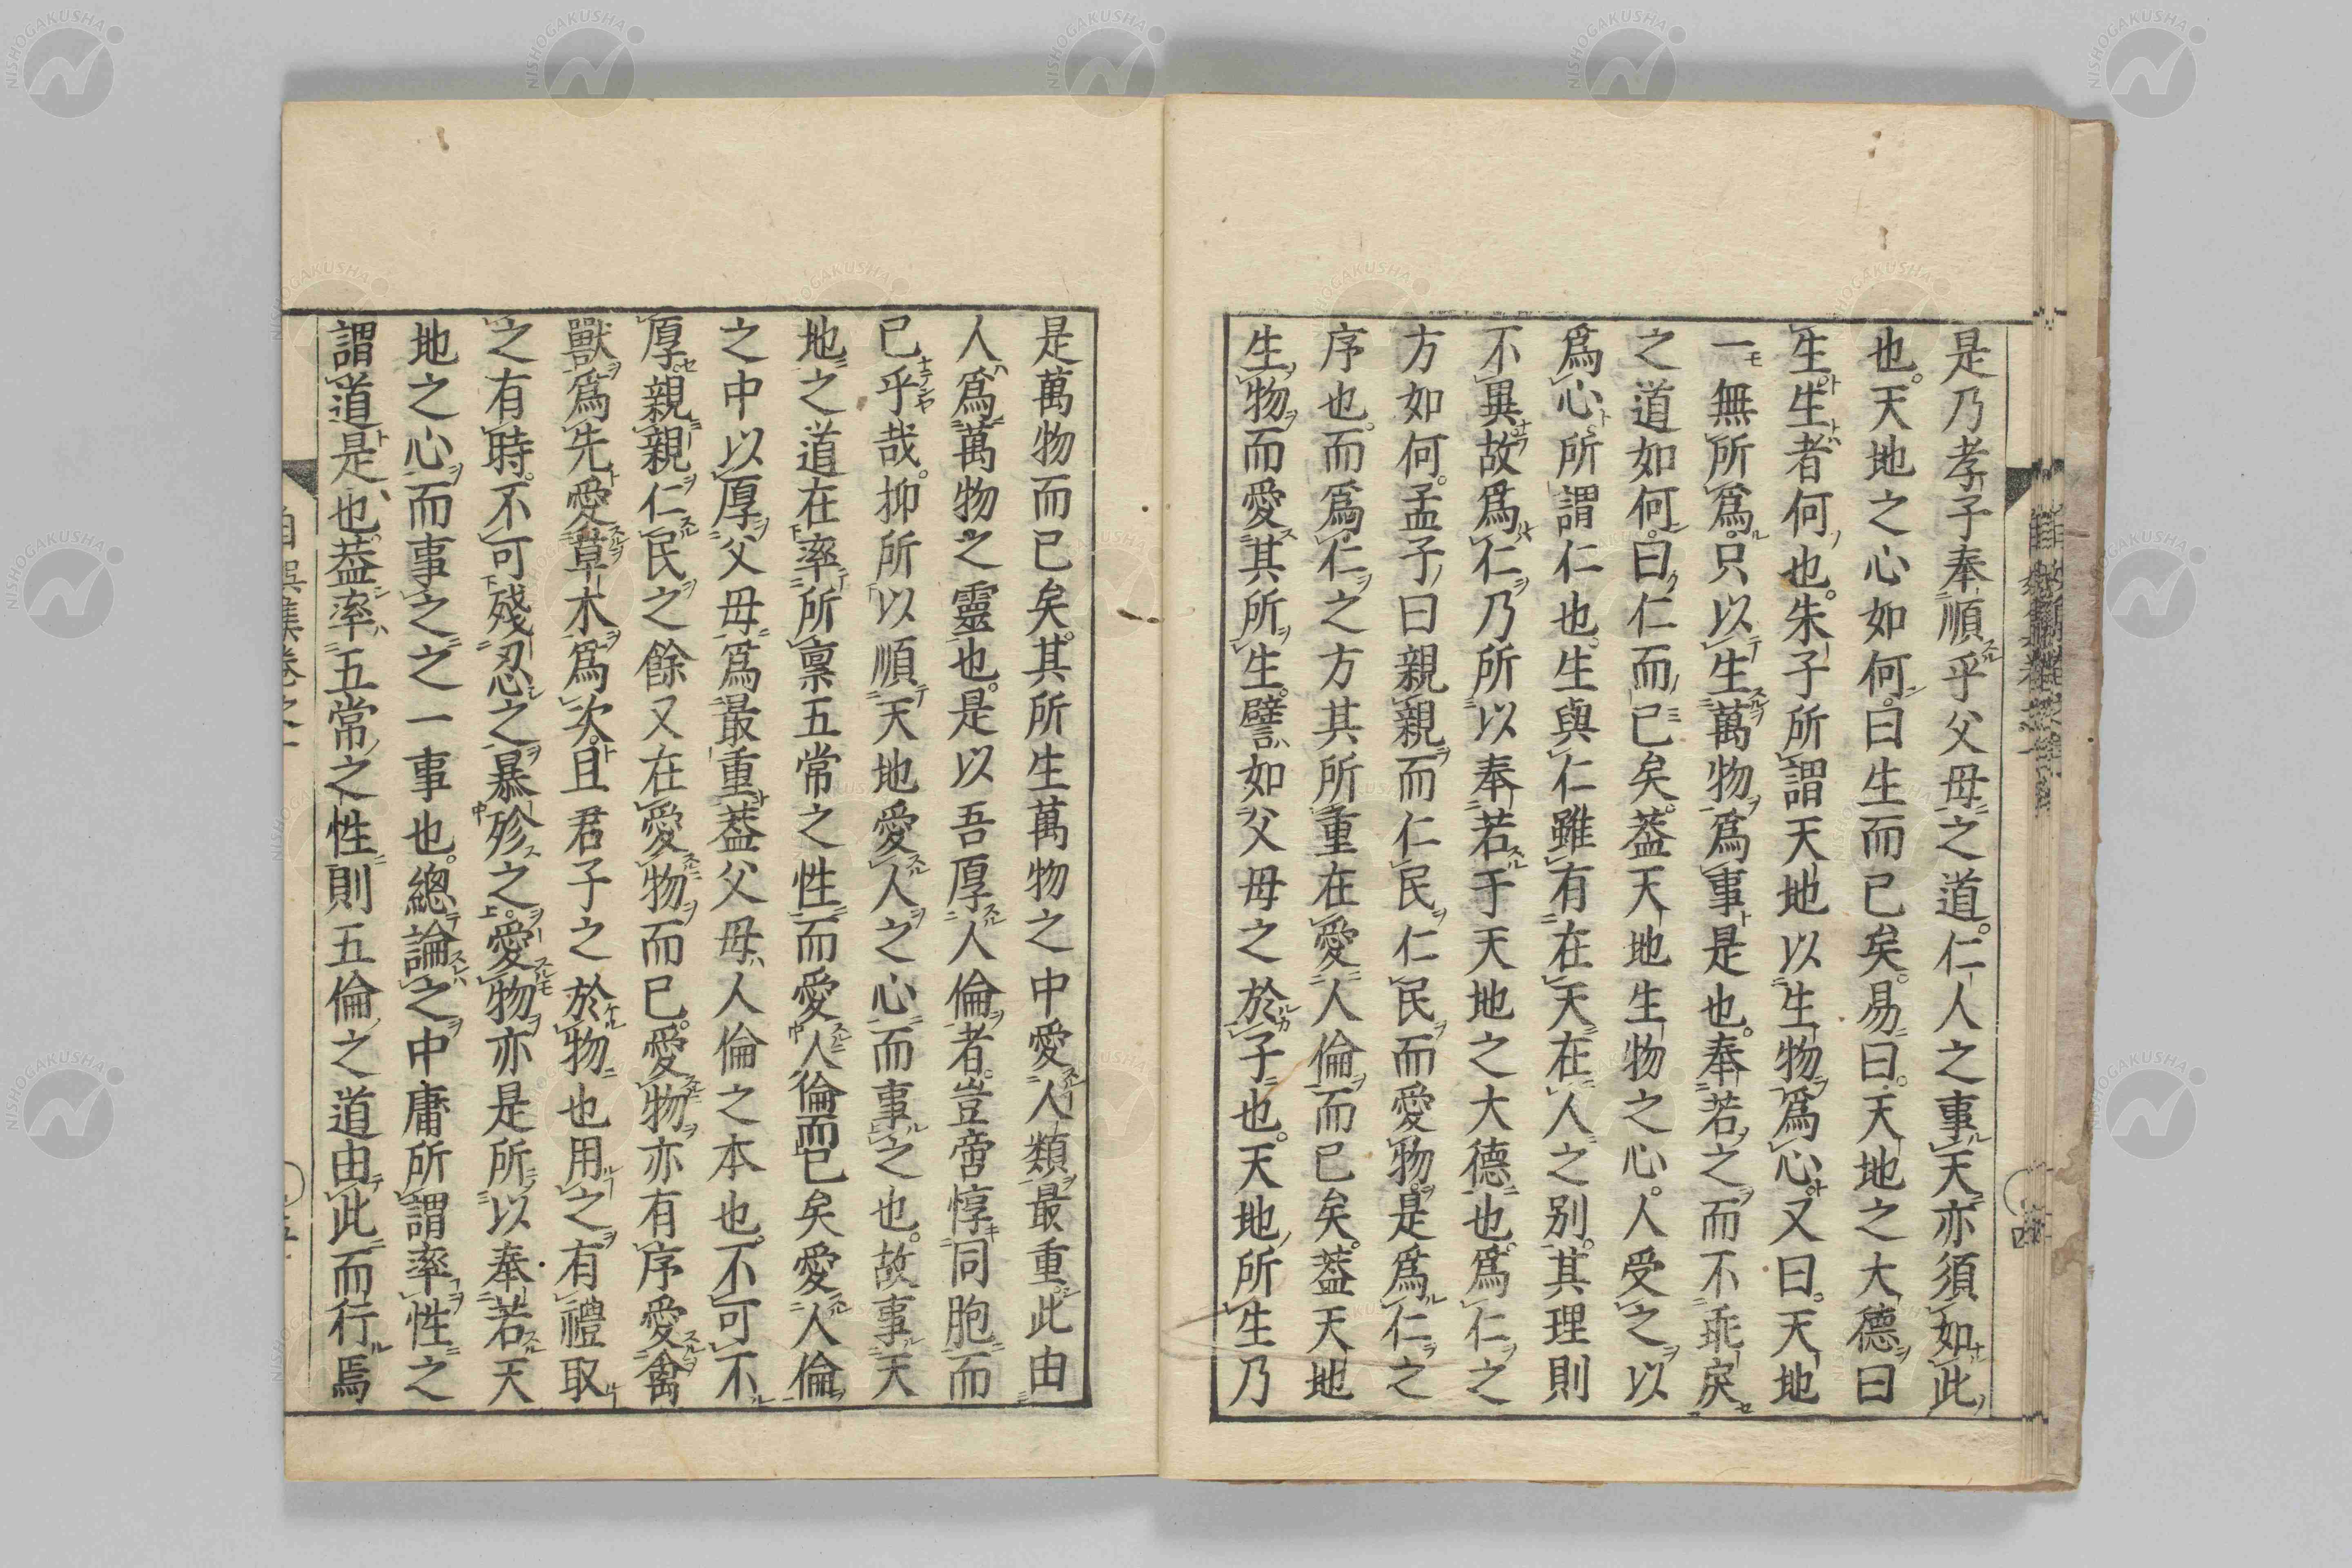 是乃孝子奉順乎父母之道。仁人之事天亦須如此
也。天地之心如何。曰生而已矣。易曰。天地之大德曰
生生者何也。朱子所謂天地以生物爲心又曰。天地
一無所爲。只以生萬物爲事是也。奉若之而不乖戾
之道如何。曰仁而已矣。蓋天地生物之心。人受之以
爲心。所謂仁也。生與仁雖有在天在人之別。其理則
不異。故爲仁乃所以奉若于天地之大德也。爲仁之
方如何。孟子曰親親而仁民仁民而愛物。是爲仁之
序也。而爲仁之方其所重在愛人倫而已矣。蓋天地
生物而愛其所生。譬如父母之於子也。天地所生乃
是萬物而已矣。其所生萬物之中愛人類最重。此由
人爲萬物之靈也。是以吾厚人倫者。豈啻惇同胞而
已乎哉。抑所以順天地愛人之心而事之也。故事天
地之道在率所稟五常之性而愛人倫而已矣愛人倫
之中以厚父母爲最重。蓋父母人倫之本也。不可不
厚。親親仁民之餘又在愛物而已。愛物亦有序愛禽
獸爲先愛草木爲次。且君子之於物也用之有禮取
之有時。不可殘忍之暴殄之。愛物亦是所以奉若天
地之心而事之之一事也。總論之中庸所謂率性之
謂道是也。蓋率五常之性則五倫之道由此而行焉